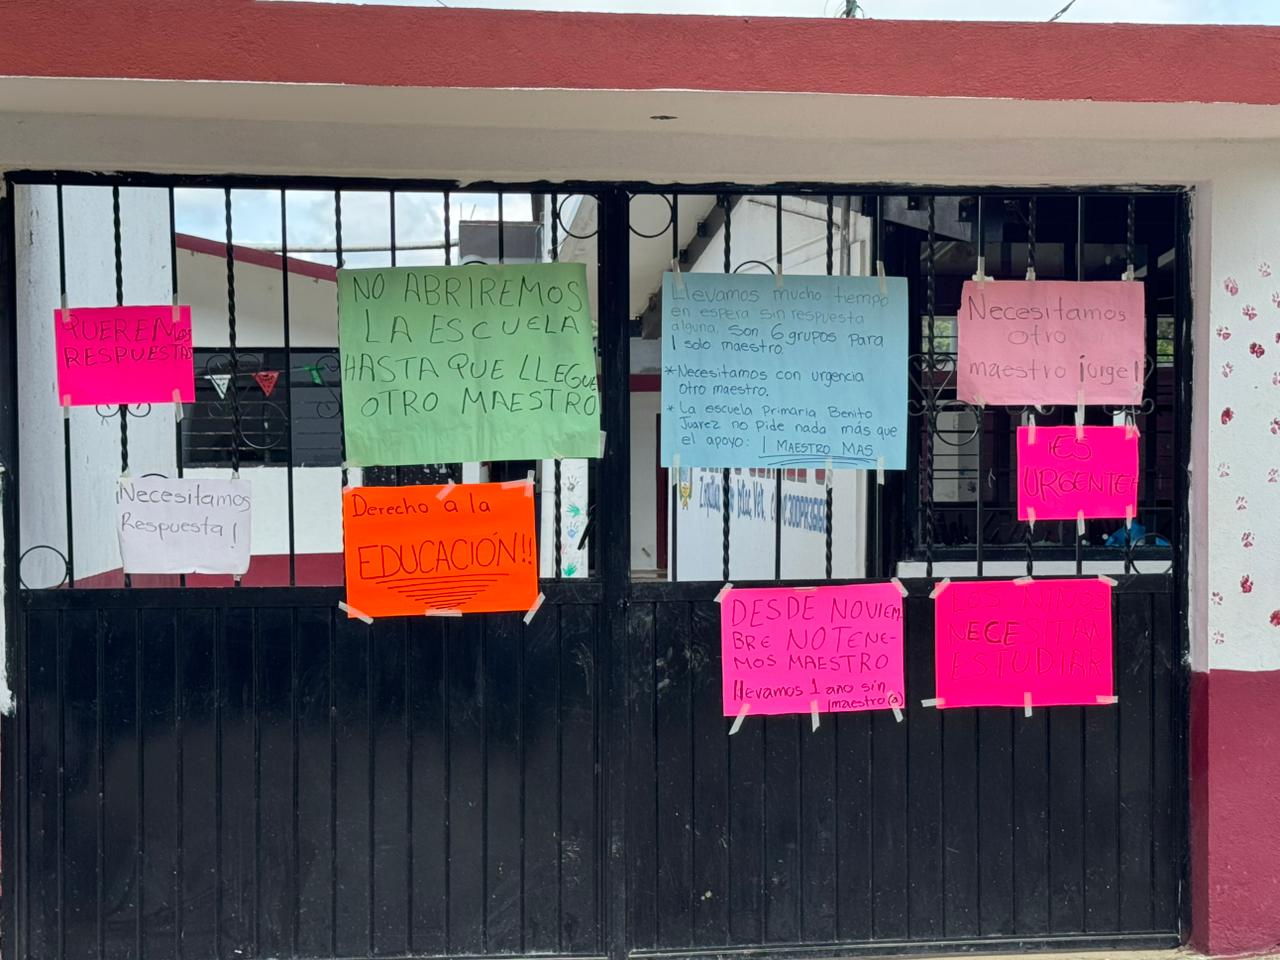 QUEREMOS
RESPUESTAS
¡Necesitamos
Respuesta!
NO ABRIREMOS
LA ESCUELA
HASTA QUE LLEGUE
OTRO MAESTRO
Derecho a la
EDUCACIÓN!!
Llevamos mucho tiempo
en espera sin respuesta
alguna. son 6 grupos para
1 solo maestro.
*Necesitamos con urgencia
otro maestro.
* La escuela Primaria Benito
Juarez no pide nada más que
el apoyo: 1 MAESTRO MAS
Necesitamos
otro
maestro ¡urge!
¡ES
URGENTE!
DESDE NOVIEM-
BRE NO TENE-
MOS MAESTRO
llevamos 1 año sin
maestro(a)
LOS NIÑOS
NECESITAN
ESTUDIAR